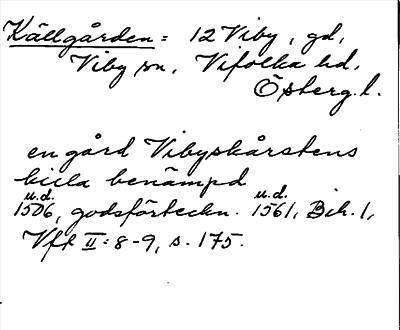 Källgården = 12 Viby, gd,
Viby sn, Vifolka hd,
Österg. l.
en gård Vibyskårstens
kiella benämpd
u.d. u.d.
1506, godsförteckn. 1561, Bih. 1,
Vft II: 8-9, s. 175.